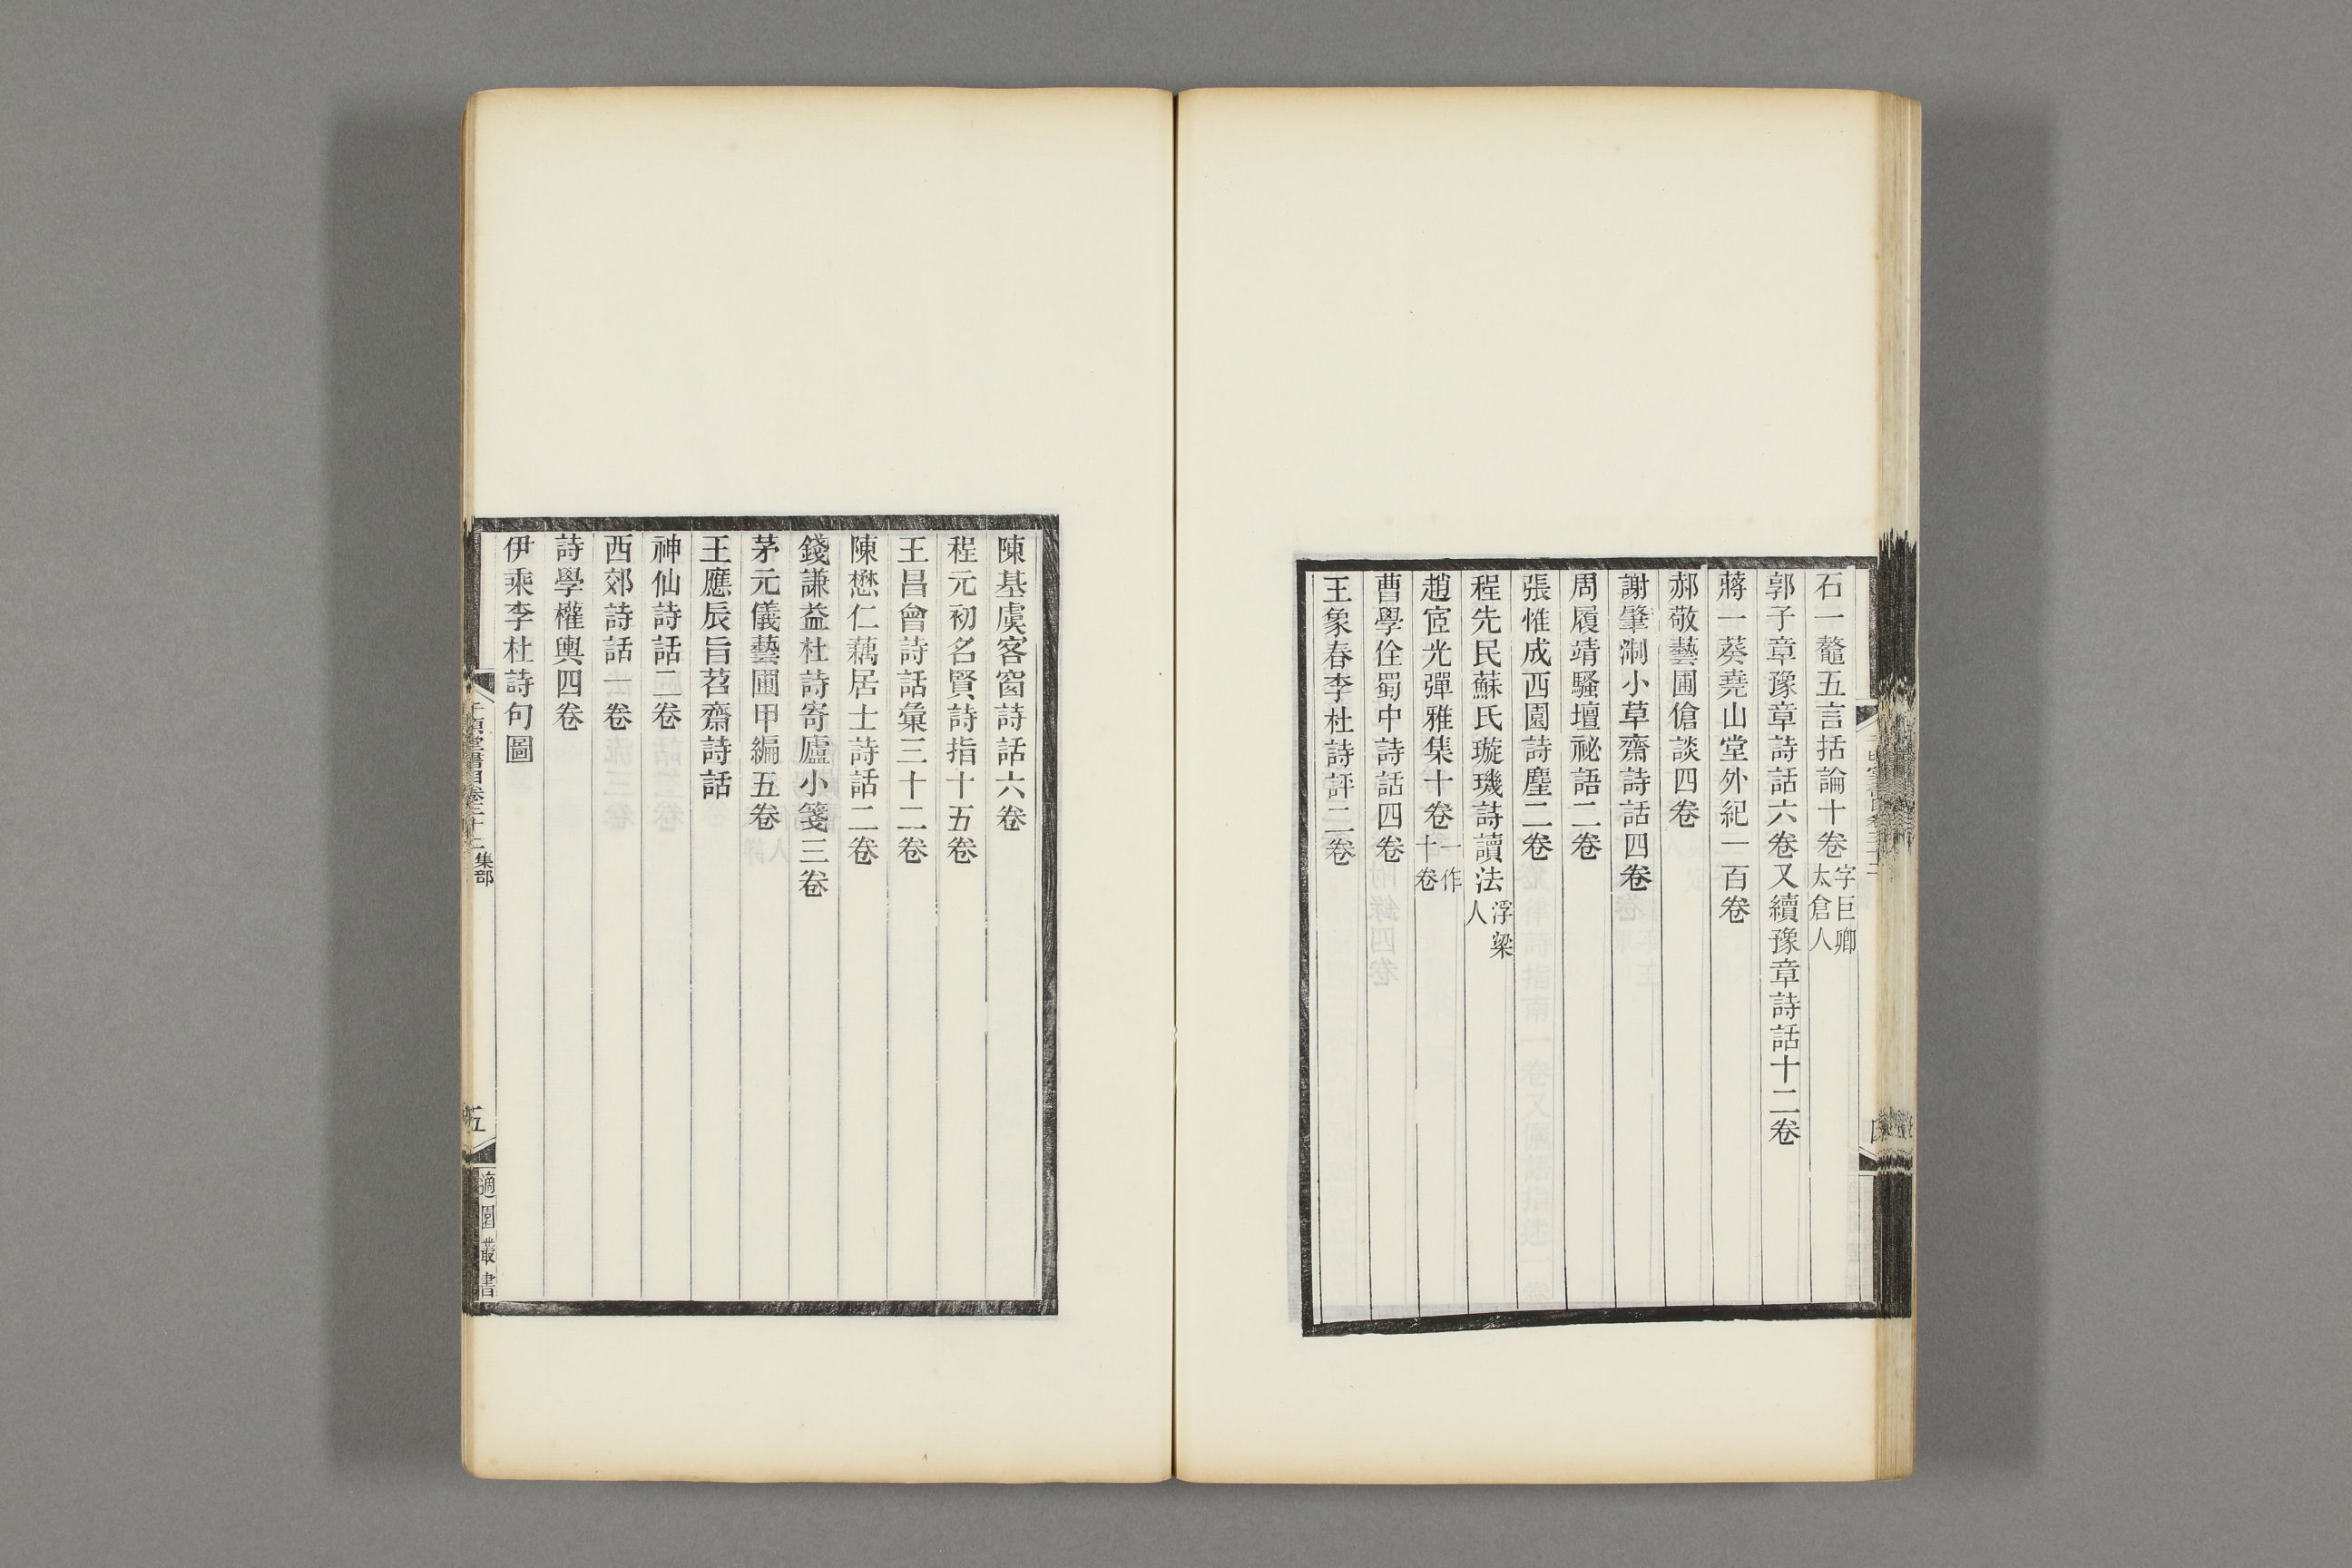 石一鼇五言括論十卷字巨卿太倉人
郭子章豫章詩話六卷又續豫章詩話十二卷
蔣一葵堯山堂外紀一百卷
郝敬藝圃傖談四卷
謝肇淛小草齋詩話四卷
周履靖騷壇祕語二卷
張惟成西園詩麈二卷
程先民蘇氏璇璣詩讀法浮梁人
趙宧光彈雅集十卷一作十卷
曹學佺蜀中詩話四卷
王象春李杜詩評二卷
陳基虞客窗詩話六卷
程元初名賢詩指十五卷
王昌會詩話彙三十二卷
陳懋仁藕居士詩話二卷
錢謙益杜詩寄廬小箋三卷
茅元儀藝圃甲編五卷
王應辰旨苕齋詩話
神仙詩話二卷
西郊詩話一卷
詩學權輿四卷
伊乘李杜詩句圖
千頃堂書目卷三十二 集部
五
適園叢書